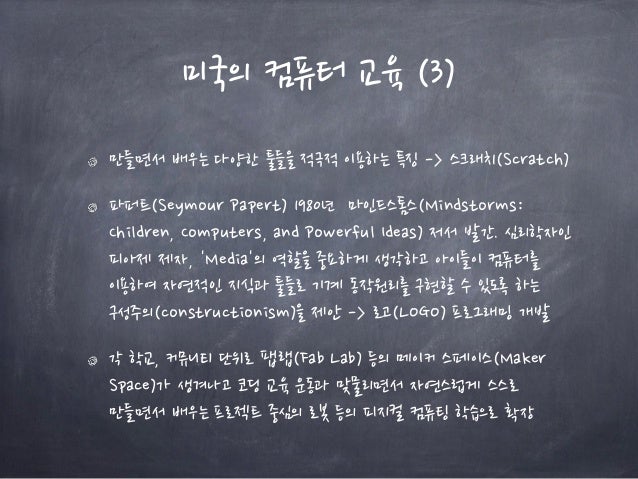 미국의 컴퓨터 교육 (3)
만들면서 배우는 다양한 툴들을 적극적 이용하는 특징 -> 스크래치(Scratch)
파퍼트(Seymour Papert) 1980년 마인드스톰스(Mindstorms:
children, computers, and Powerful Ideas) 저서 발간. 심리학자인
피아제 제자, 'Media'의 역할을 중요하게 생각하고 아이들이 컴퓨터를
이용하여 자연적인 지식과 툴들로 기계 동작원리를 구현할 수 있도록 하는
구성주의(constructionism)을 제안 -> 로고(LOGO) 프로그래밍 개발
각 학교, 커뮤니티 단위로 팹랩(Fab Lab) 등의 메이커 스페이스(Maker
Space)가 생겨나고 코딩 교육 운동과 맞물리면서 자연스럽게 스스로
만들면서 배우는 프로젝트 중심의 로봇 등의 피지컬 컴퓨팅 학습으로 확장